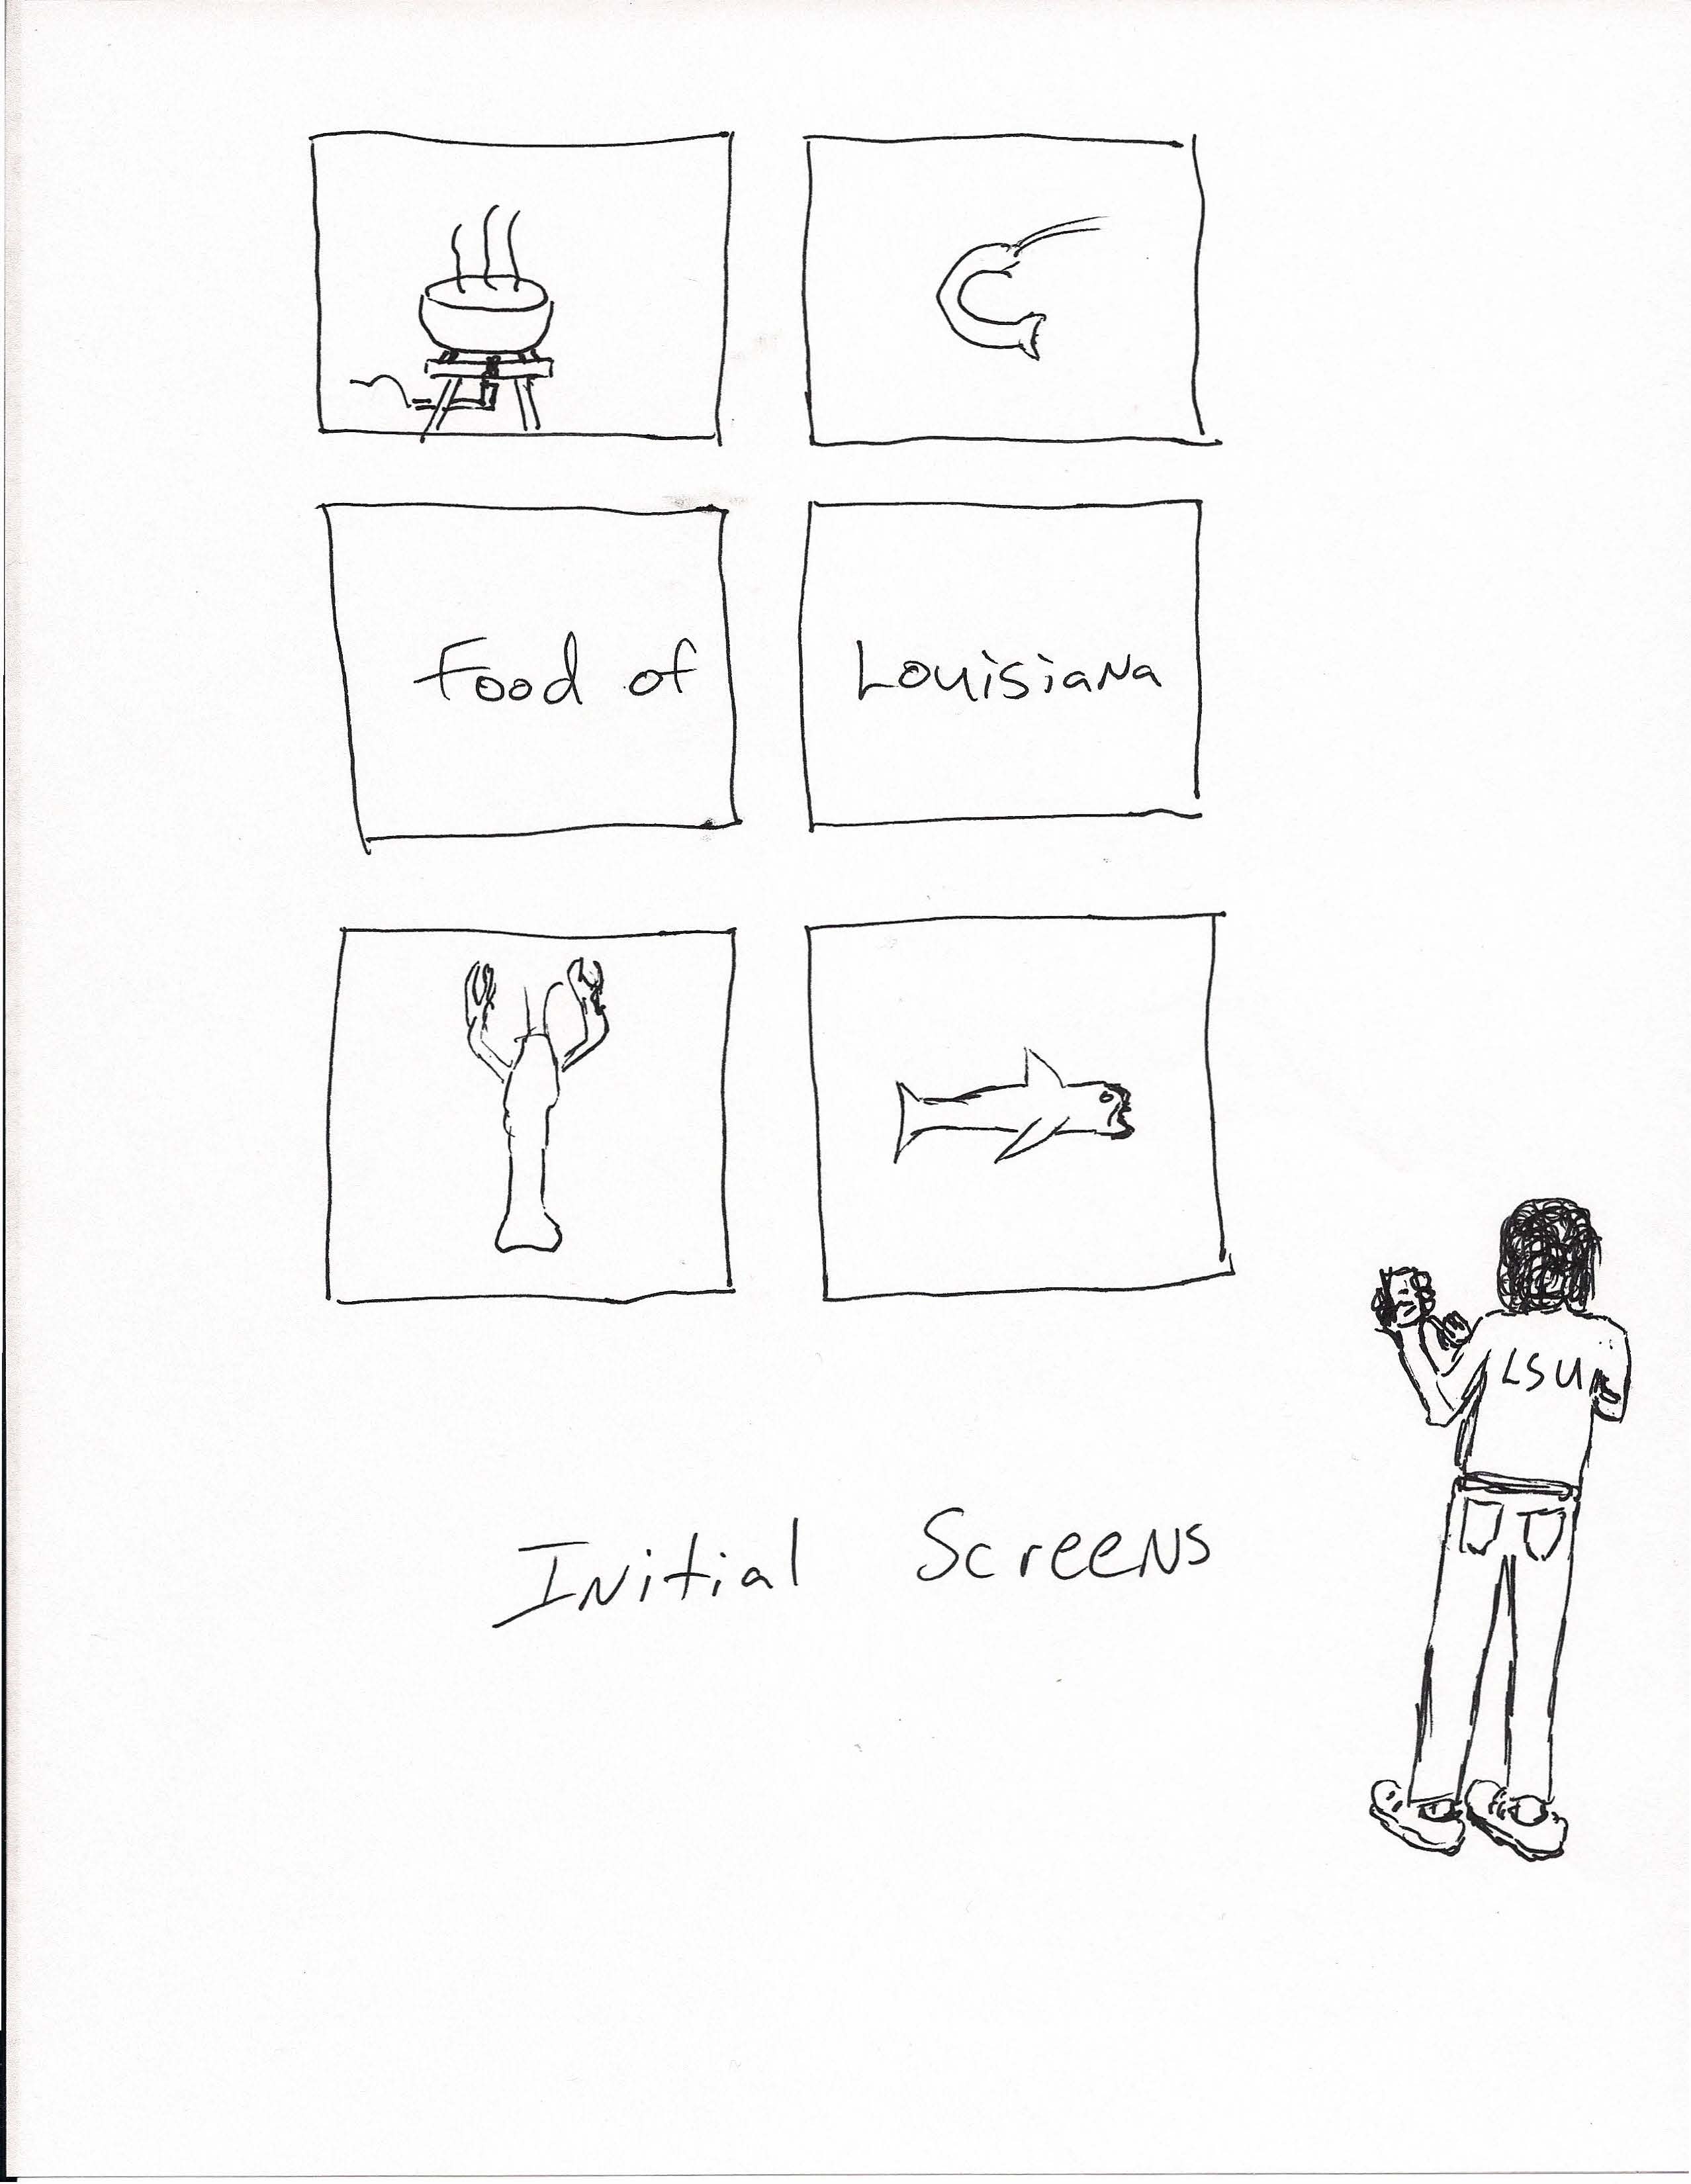 Food of Louisiana
LSU
Initial Screens